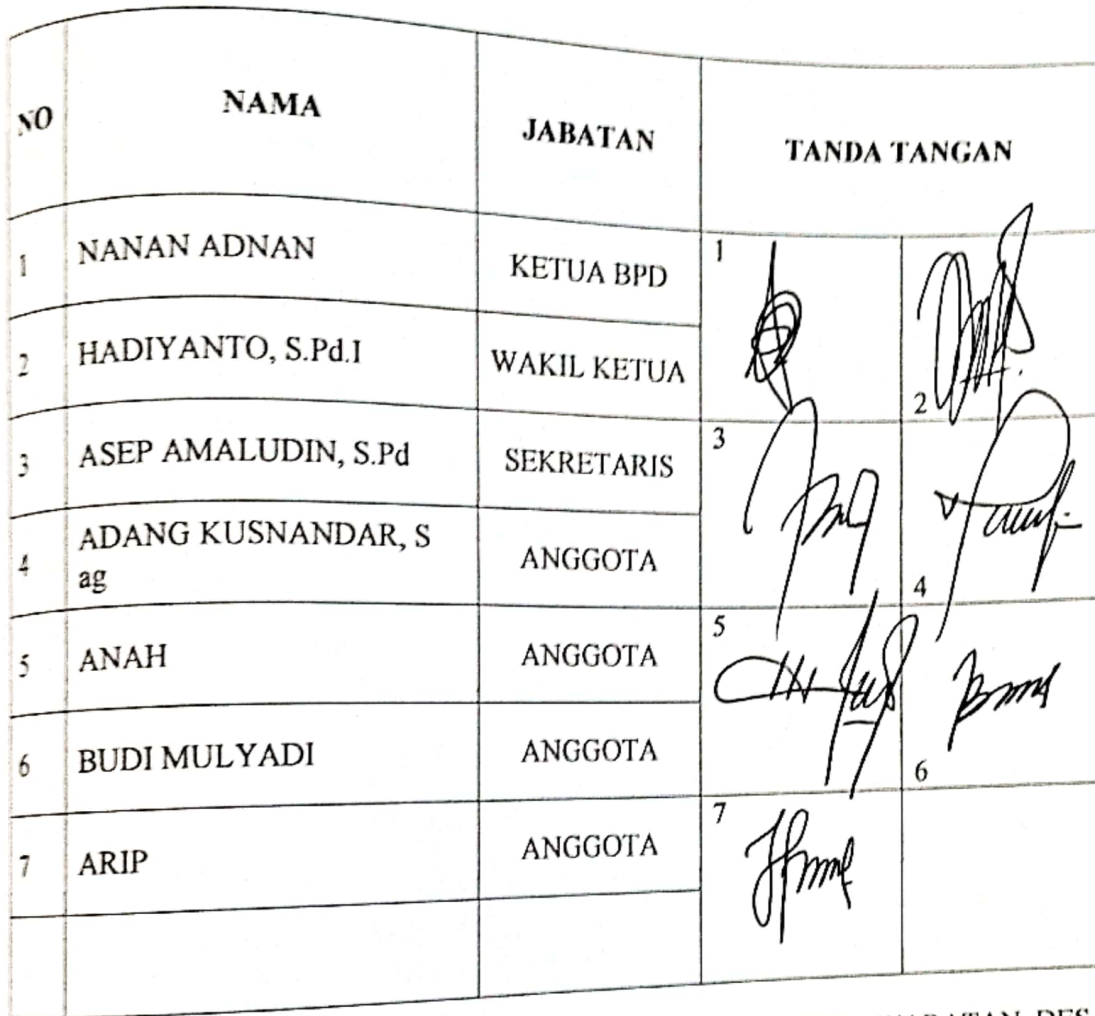 NO NAMA JABATAN TANDA TANGAN
1 NANAN ADNAN KETUA BPD 1
2 HADIYANTO, S.Pd.I WAKIL KETUA 2
3 ASEP AMALUDIN, S.Pd SEKRETARIS 3
4 ADANG KUSNANDAR, S
ag ANGGOTA 4
5 ANAH ANGGOTA 5
6 BUDI MULYADI ANGGOTA 6
7 ARIP ANGGOTA 7